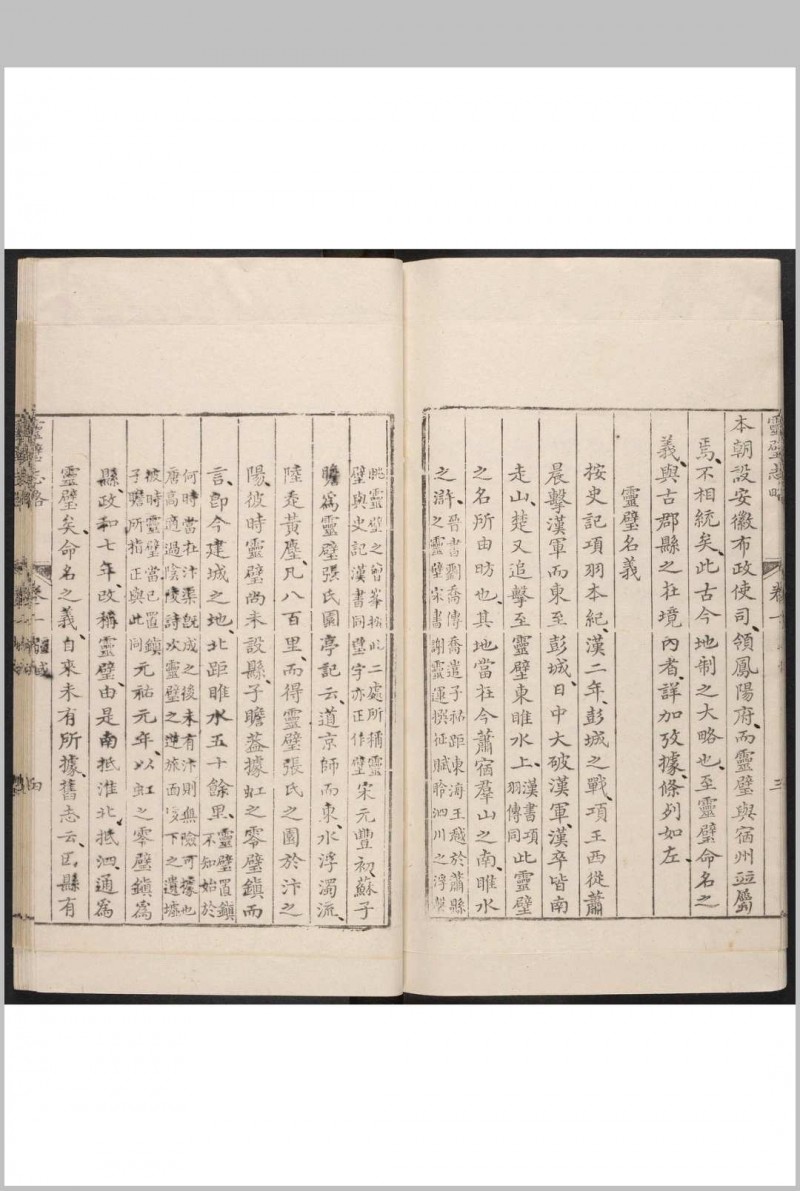 靈璧志略 卷一 三
本朝設安徽布政使司、領鳳陽府、而靈璧與宿州竝屬
焉、不相統矣、此古今地制之大略也、至靈璧命名之
義、與古郡縣之在境內者、詳加攷據、條列如左、
靈璧名義
按史記項羽本紀、漢二年、彭城之戰、項王西從蕭
晨擊漢軍而東至彭城、日中大破漢軍、漢卒皆南
走山、楚又追擊至靈璧東睢水上、漢書項羽傳同此靈璧
之名所由昉也、其地當在今蕭宿羣山之南、睢水
之滸、晉書劉喬傳喬遣子祐距東海王越於蕭縣
之靈壁宋書謝靈運撰征賦聆泗川之浮磬
眺靈璧之曾峯指此二處所稱靈
壁與史記漢書同璧字亦正作壁宋元豐初蘇子
瞻為靈璧張氏園亭記云、道京師而東、水浮濁流、
陸走黃塵、凡八百里、而得靈璧張氏之園於汴之
陽、彼時靈璧尚未設縣、子瞻蓋據虹之零璧鎮而
言、即今建城之地、北距睢水五十餘里、靈璧置鎮不知始於
何時當在汴渠既成之後未有汴則無險可據也
唐高適過陰陵詩次靈璧之逆旅面垓下之遺墟
彼時靈璧當已置鎮
子瞻所指正與此同元祐元年、以虹之零璧鎮為
縣、政和七年、改稱靈璧、由是南抵淮北、抵泗、通為
靈璧矣、命名之義、自來未有所據、舊志云、因縣有